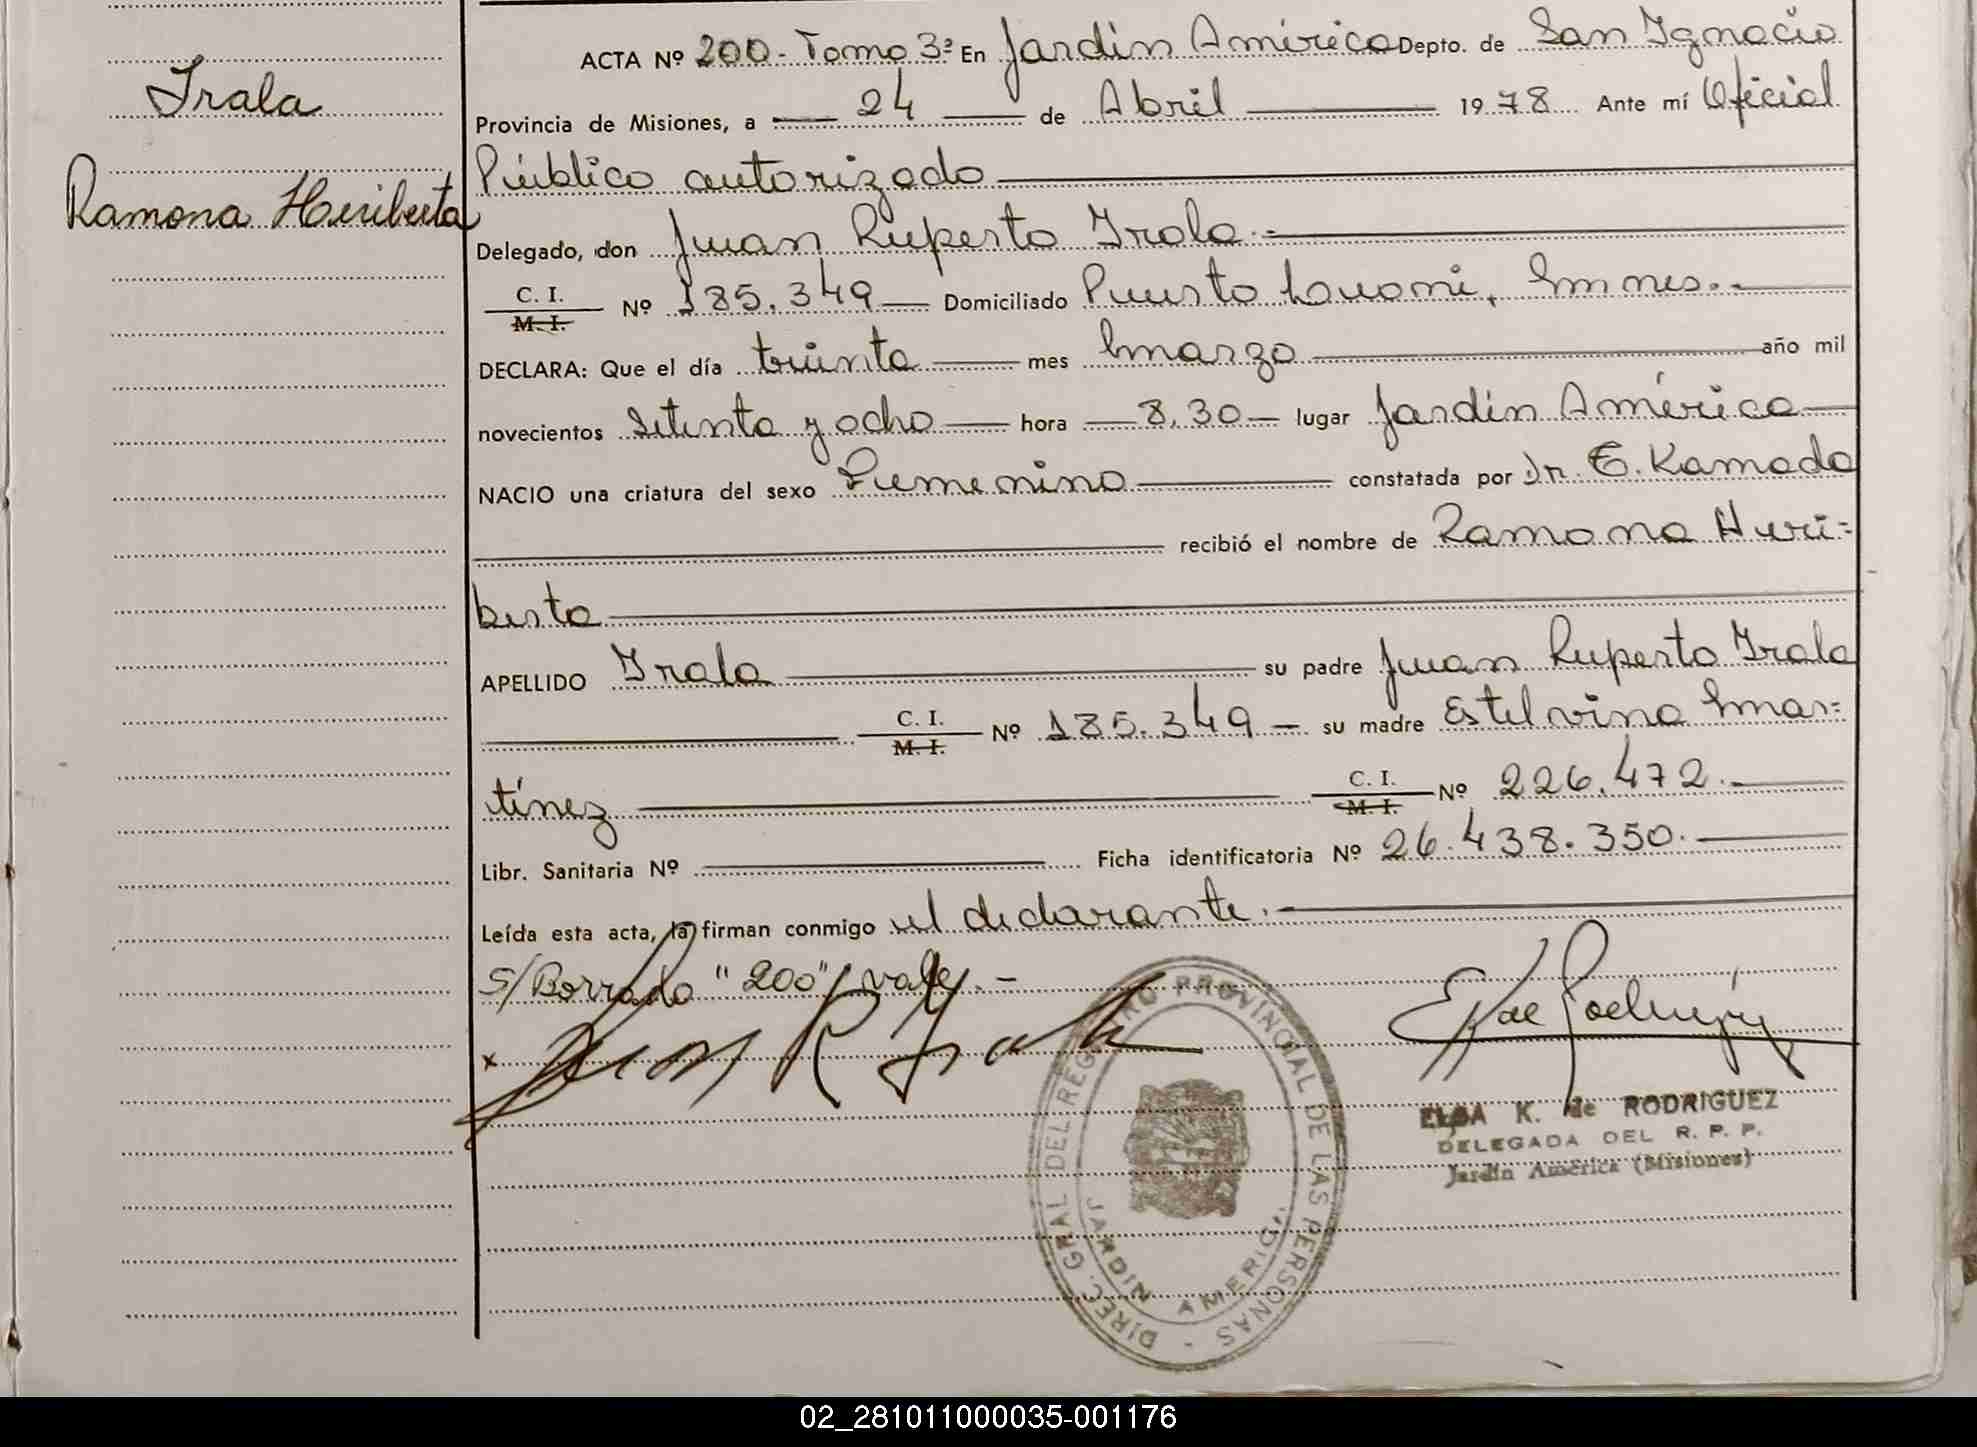 Irala
Ramona Heriberta
ACTA Nº 200 - Tomo 3º En Jardín América Depto. de San Ignacio
Provincia de Misiones, a 24 de Abril 1978 Ante mí Oficial
Público autorizado
Delegado, don Juan Ruperto Irala.-
C. I.
M. I. Nº 185.349 Domiciliado Puerto Mnes.-
DECLARA: Que el día treinta mes marzo año mil
novecientos setenta y ocho hora 8,30 lugar Jardín América
NACIO una criatura del sexo Femenino constatada por Dr. E. Kamada
recibió el nombre de Ramona Heri=
berta
APELLIDO Irala su padre Juan Ruperto Irala
C. I.
M. I. Nº 185.349 - su madre Estelvina Mar=
tínez C. I.
M. I. Nº 226.472.-
Libr. Sanitaria Nº Ficha identificatoria Nº 26.438.350.-
Leída esta acta, la firman conmigo el declarante.-
S/Borrado "200" vale.-
x Juan R Irala
ELSA K. de RODRIGUEZ
DELEGADA DEL R. P. P.
Jardín América (Misiones)
DIREC. GRAL DEL REGISTRO PROVINCIAL DE LAS PERSONAS -
JARDIN AMERICA
02_281011000035-001176